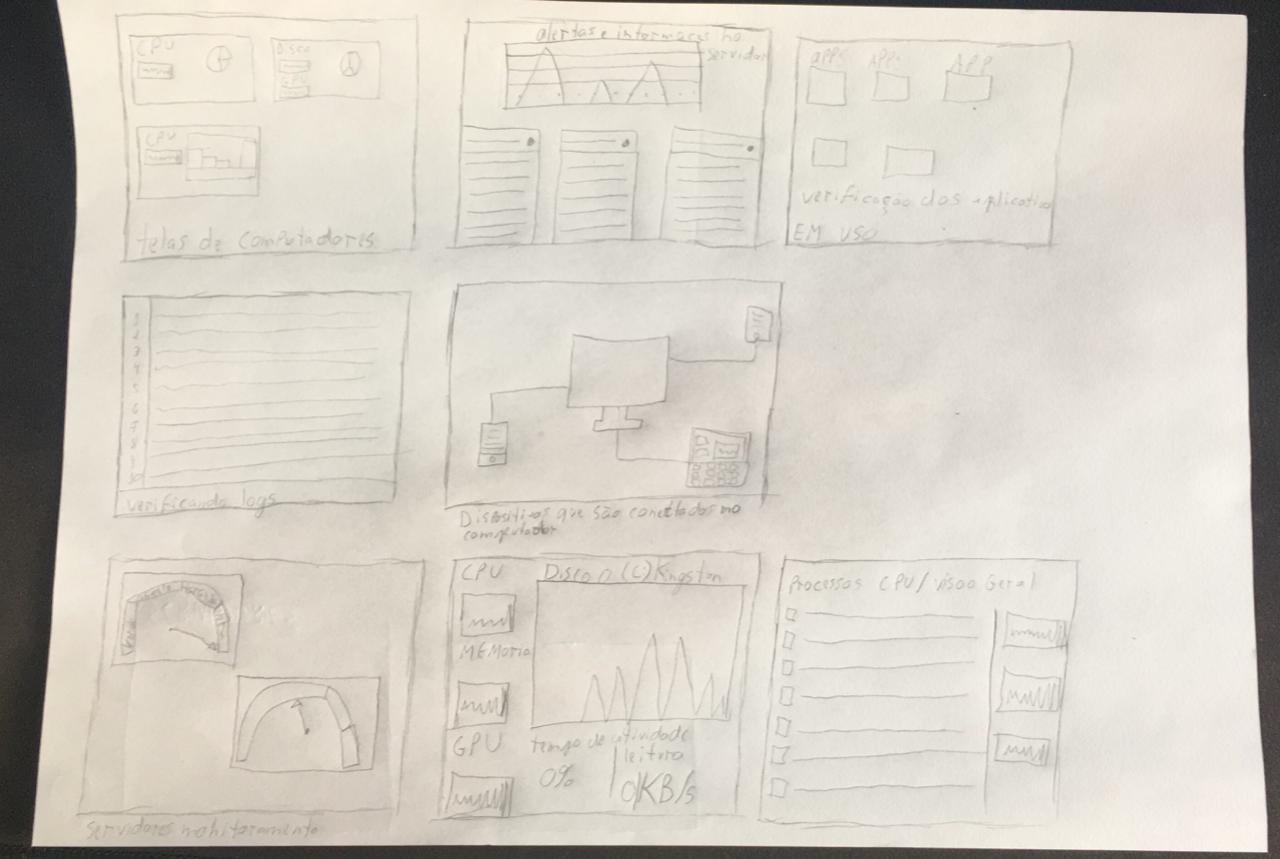 CPU
Disco
GPU
CPU
telas de computadores
alertas e informações no
servidor
APPS
APPS
APP
verificação dos aplicativo
EM USO
1
2
3
4
5
6
7
8
9
10
verificando logs
Dispositivos que são conectados no
computador
servidores monitoramento
CPU
MEMoria
GPU
Disco 0 (C) Kingston
tempo de atividade
0%
leitura
0KB/s
Processos CPU/visao Geral